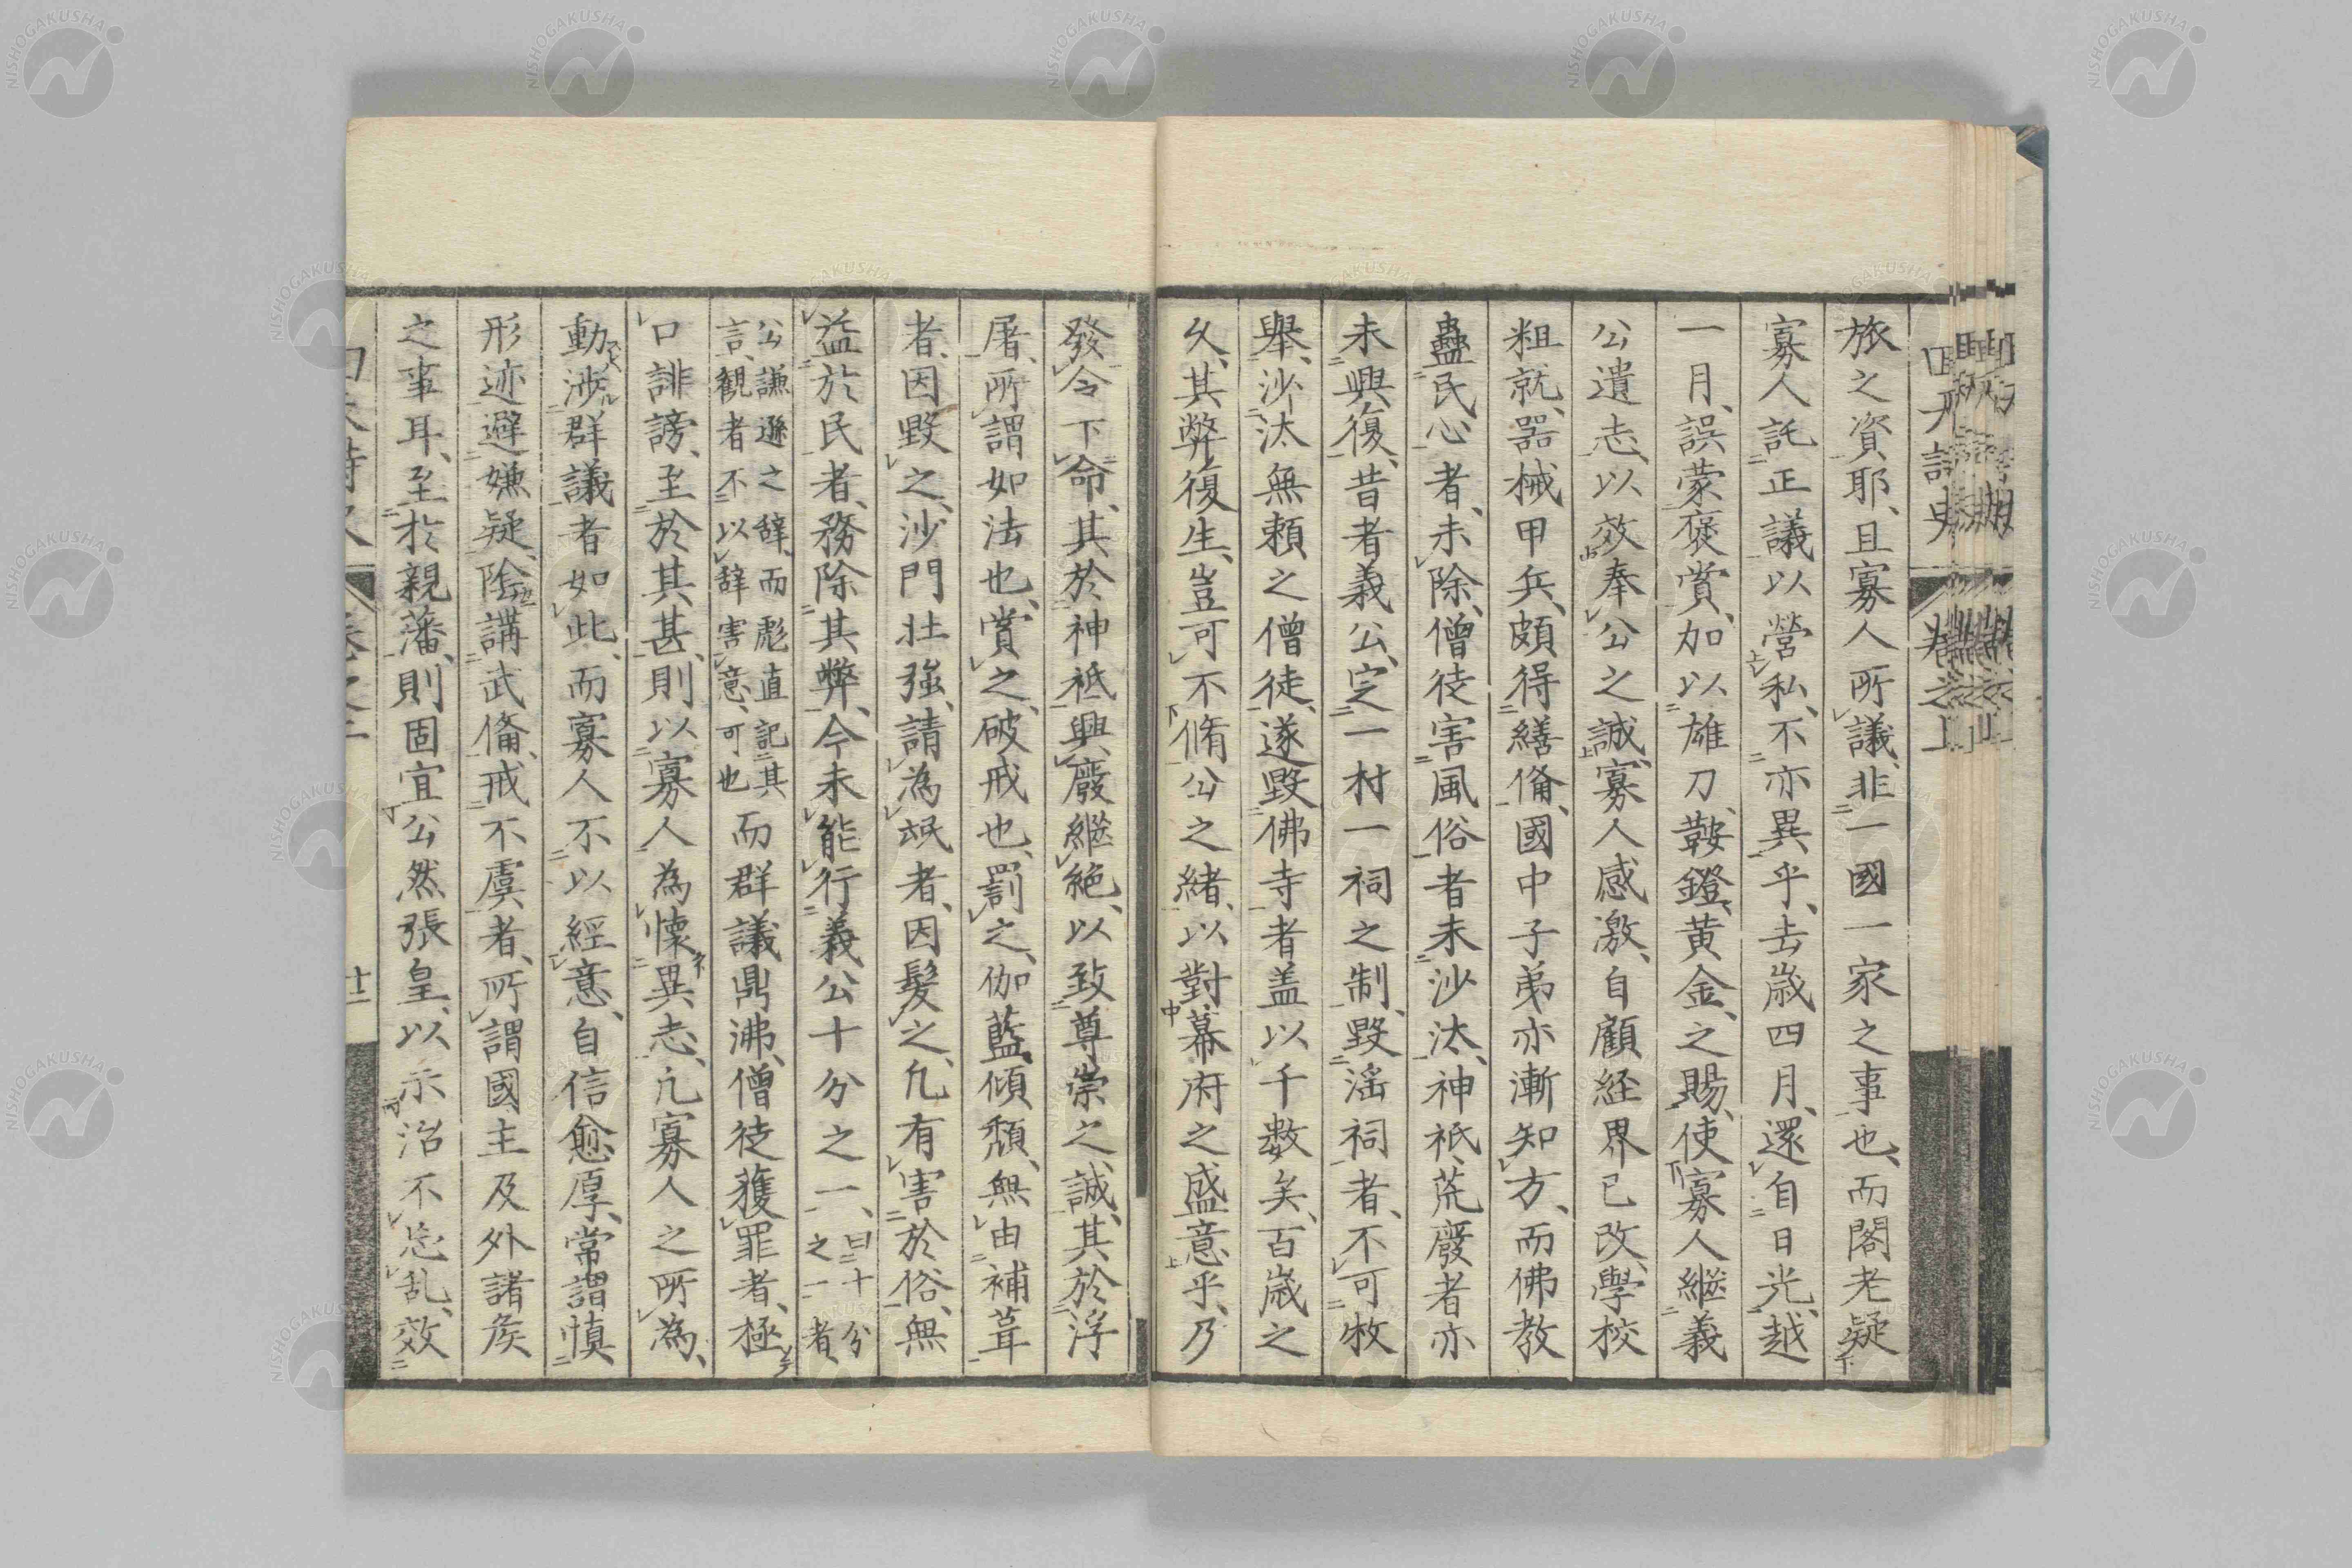 旅之資耶、且寡人所議、非一國一家之事也、而閣老疑
寡人託正議以營私、不亦異乎、去歲四月、還自日光、越
一月、誤蒙褒賞、加以雄刀、鞍鐙、黃金、之賜、使寡人繼義
公遺志、以效奉公之誠、寡人感激、自顧経界已改、學校
粗就、器械甲兵、頗得繕備、國中子弟亦漸知方、而佛教
蠱民心者、未除、僧徒害風俗者未沙汰、神祇、荒廢者亦
未興復、昔者義公、定一村一祠之制、毀淫祠者、不可枚
舉、沙汰無頼之僧徒、遂毀佛寺者盖以千數矣、百歲之
久、其弊復生、豈可不脩公之緒、以對幕府之盛意乎、乃
發令下命、其於神祇、興廢繼絶、以致尊崇之誠、其於浮
屠、所謂如法也、賞之、破戒也、罰之、伽藍傾頽、無由補葺
者、因毀之、沙門壮強、請為氓者、因髮之、凢有害於俗、無
益於民者、務除其弊、今未能行義公十分之一、曰十分
之一者、
公謙遜之辞、而彪直記其
言、觀者不以辞害意、可也
而群議鼎沸、僧徒獲罪者、極
口誹謗、至於其甚、則以寡人為懷異志、凢寡人之所為、
動渉群議者如此、而寡人不以經意、自信愈厚、常謂慎
形迹避嫌疑、陰講武備、戒不虞者、所謂國主及外諸矦
之事耳、至於親藩、則固宜公然張皇、以示治不忘乱、效
四天詩史
卷之上
十二